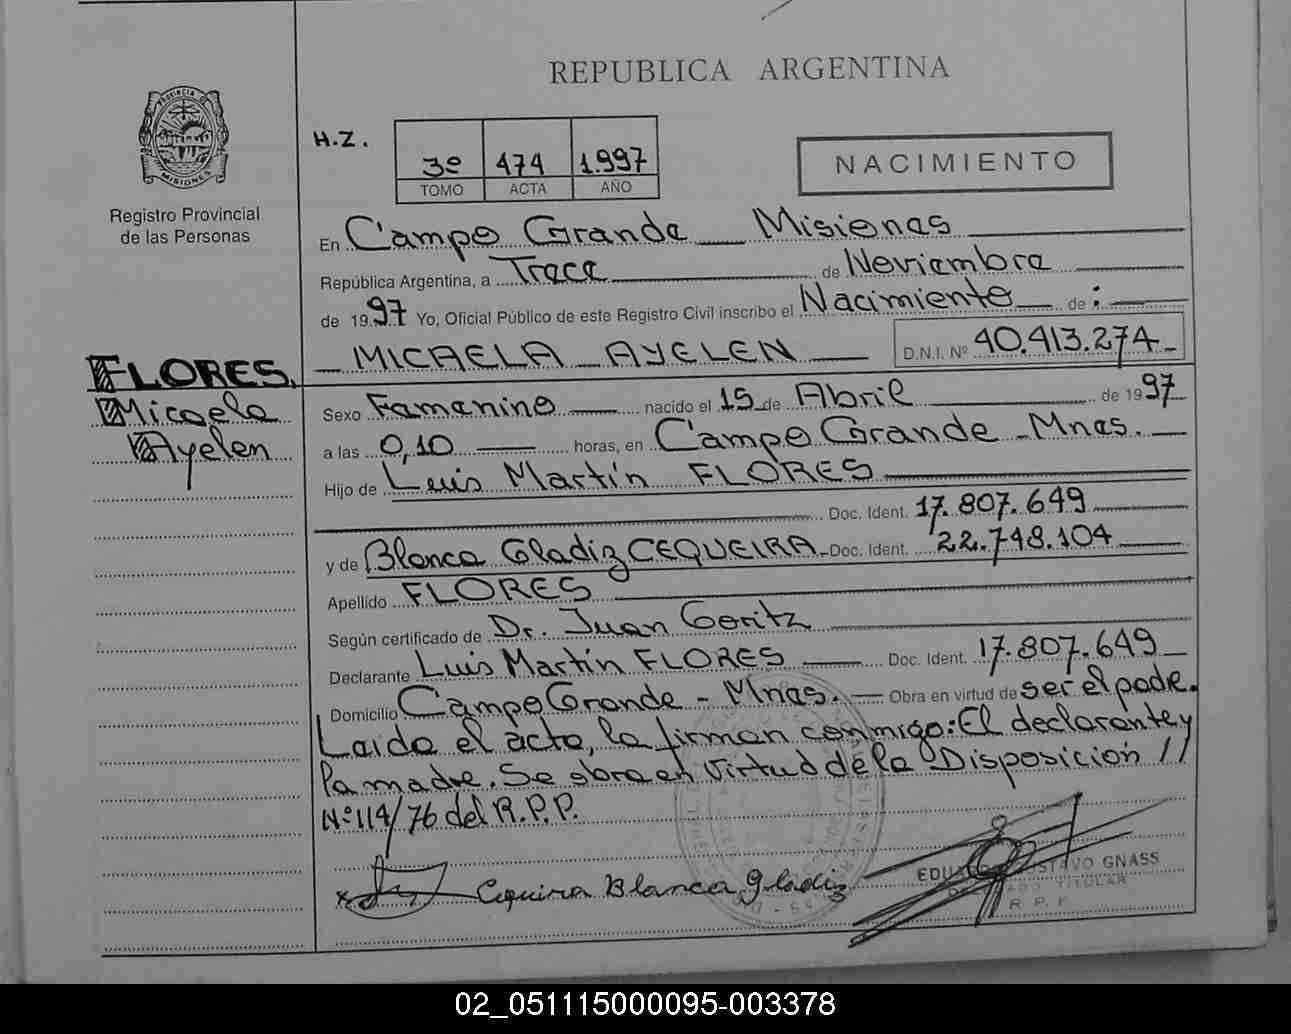 REPUBLICA ARGENTINA
PROVINCIA DE MISIONES
Registro Provincial
de las Personas
H.Z.
3º 474 1.997
TOMO ACTA AÑO
NACIMIENTO
En Campo Grande Misiones
República Argentina, a Trece de Noviembre
de 1997 Yo, Oficial Público de este Registro Civil inscribo el Nacimiento de :
MICAELA AYELEN D.N.I. Nº 40.413.274
FLORES.
Micaela
Ayelen
Sexo Femenino nacido el 15 de Abril de 1997
a las 0,10 horas, en Campo Grande - Mnes.
Hijo de Luis Martín FLORES
Doc. Ident. 17.807.649
y de Blanca Gladiz CEQUEIRA - Doc. Ident. 22.748.104
Apellido FLORES
Según certificado de Dr. Juan Goritz
Declarante Luis Martín FLORES Doc. Ident. 17.807.649
Domicilio Campo Grande - Mnes. Obra en virtud de ser el padre.
Leida el acta, la firman conmigo: El declarante y
la madre. Se obra en virtud de la Disposición //
Nº 114/76 del R.P.P.
Cequira Blanca gladiz
GNASS
TITULAR
02_051115000095-003378